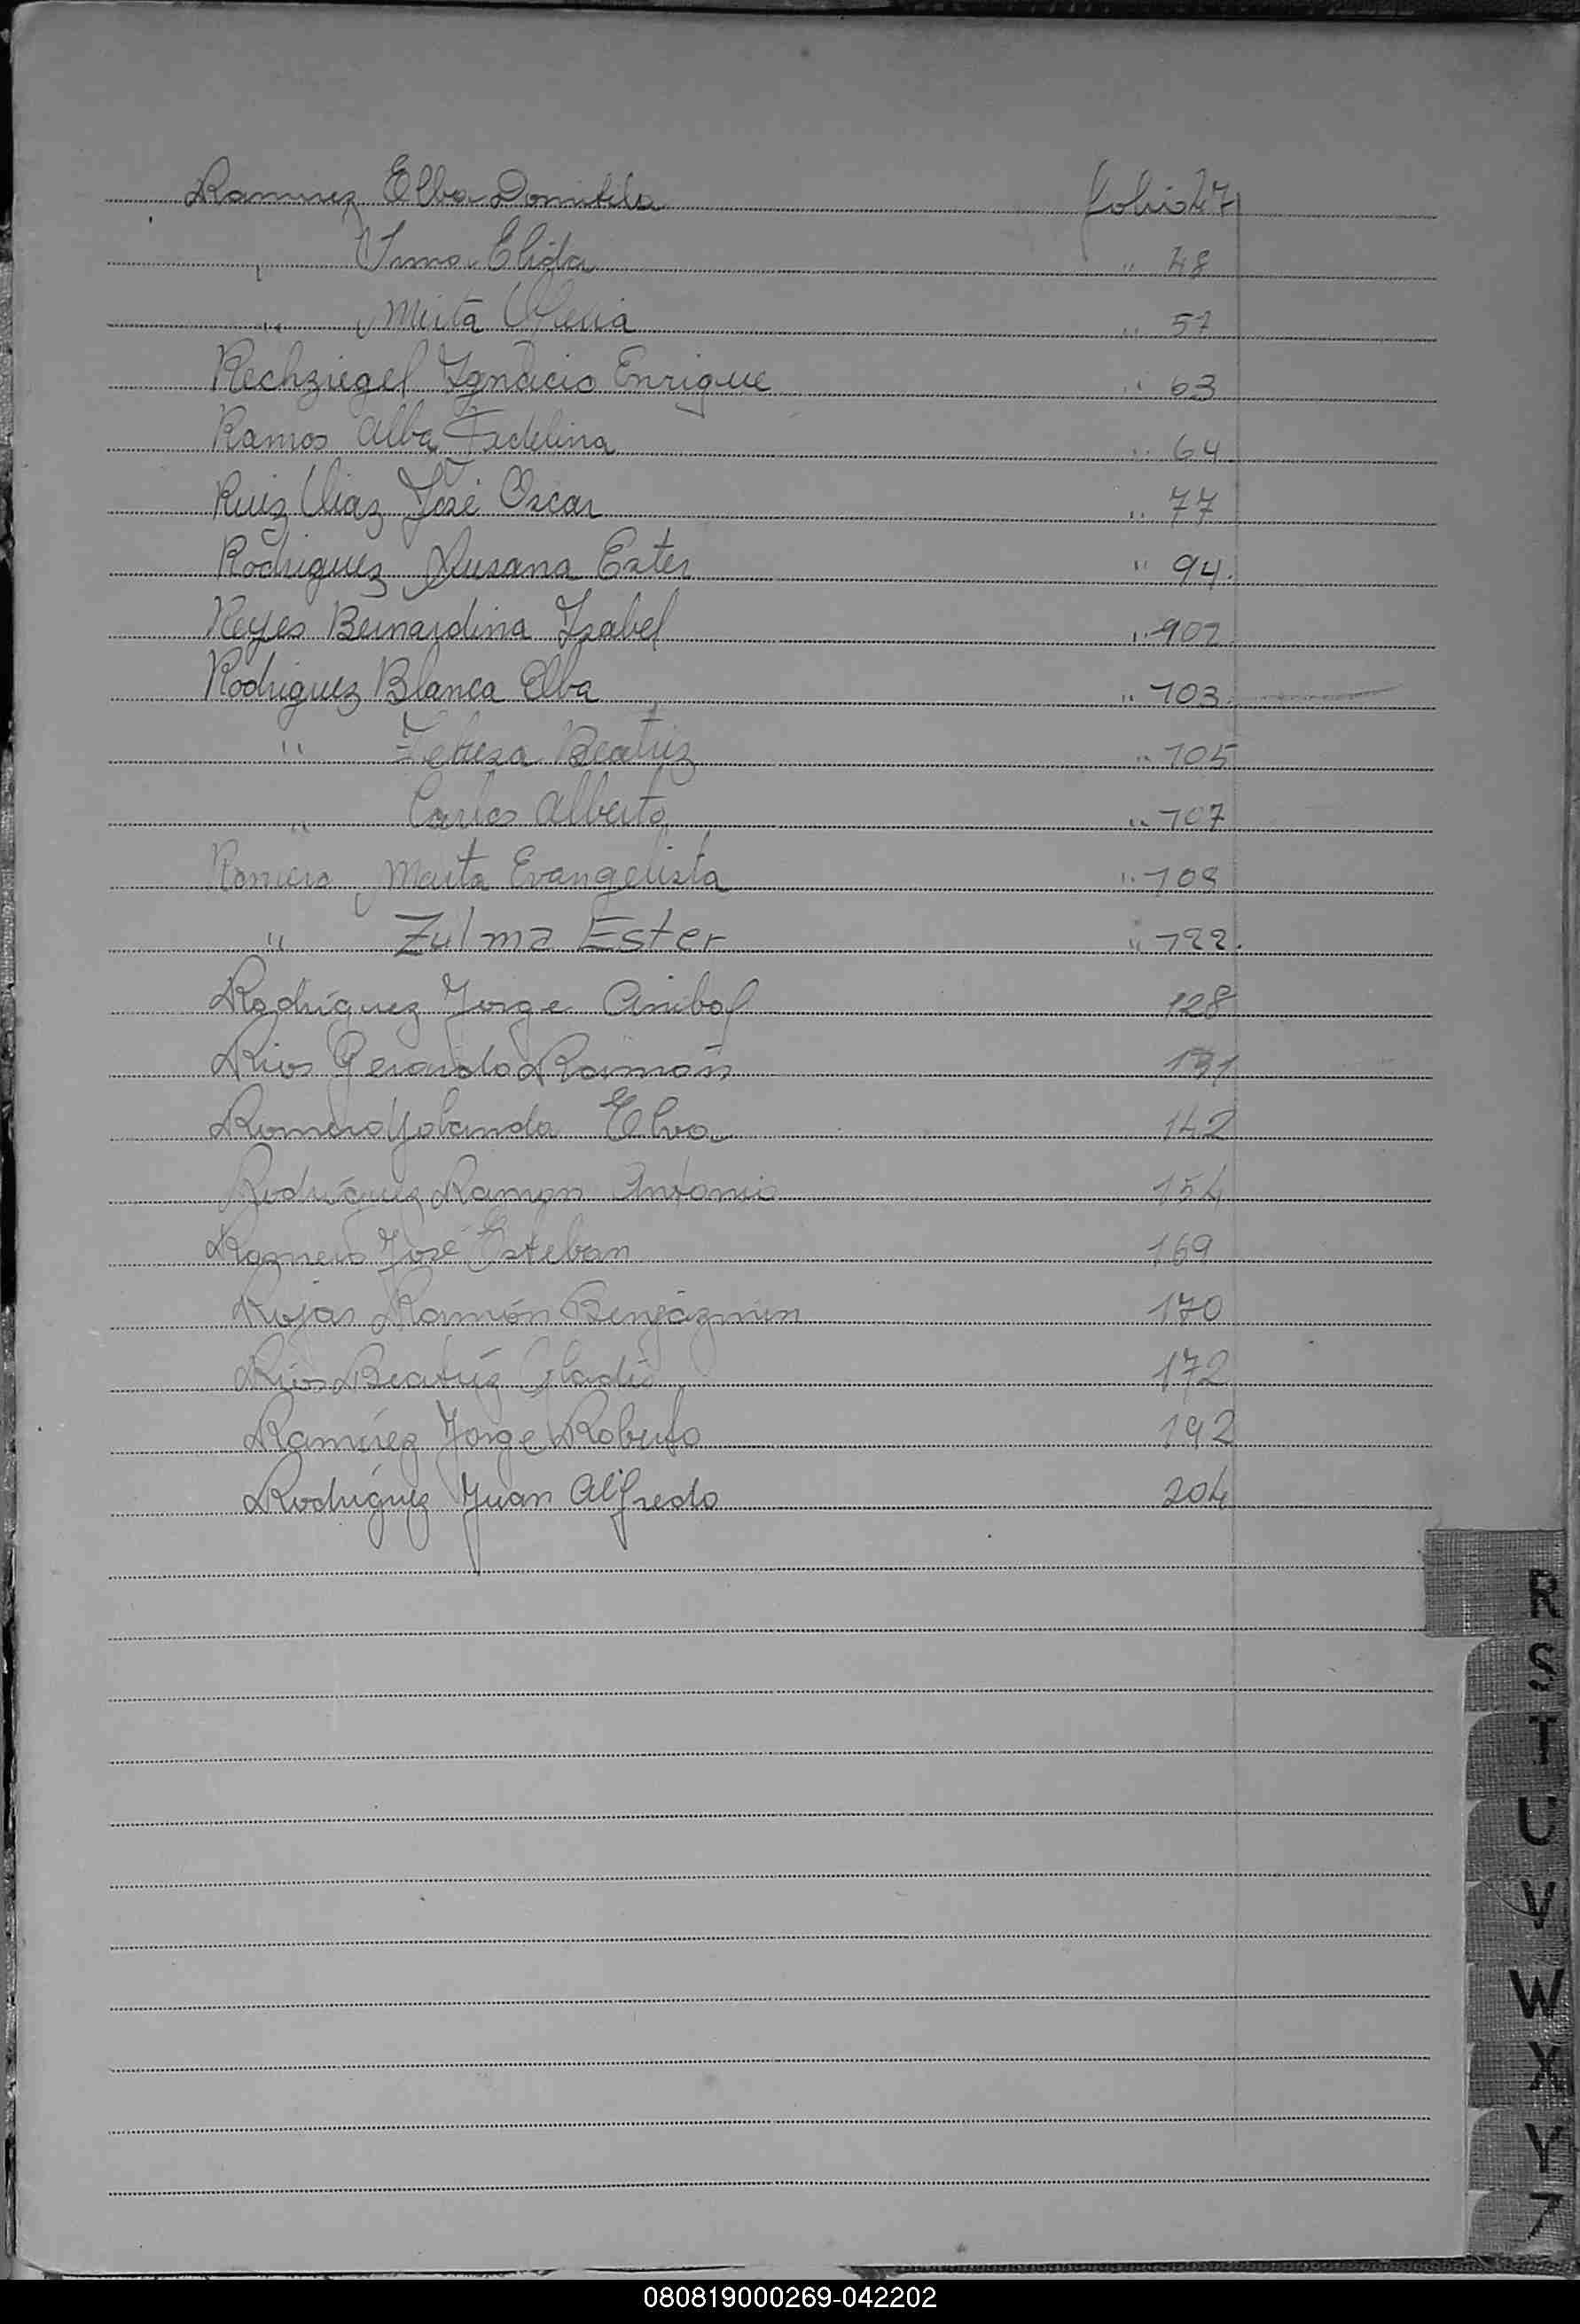 Ramirez Elba Domitila folio 47
" Irma Elida " 48
" Mirta Olelia " 57
Rechziegel Ygnacio Enrique " 63
Ramos Alba Fidelina " 64
Ruiz Diaz José Oscar " 77
Rodriguez Susana Ester " 94.
Reyes Bernardina Isabel " 102
Rodriguez Blanca Elba " 103.
" Teresa Beatriz " 105
" Carlos Alberto " 107
Romero Marta Evangelista " 108
" Zulma Ester " 122.
Rodríguez Jorge Anibal 128
Rios Gerardo Ramón 131
Romero Yolanda Elva 142
Rodríguez Ramon Antonio 154
Romero José Esteban 169
Rojas Ramón Benjázmin 170
Ríos Beatríz Gladis 172
Ramírez Jorge Roberto 192
Rodríguez Juan Alfredo 204
R
S
T
U
V
W
X
Y
Z
080819000269-042202